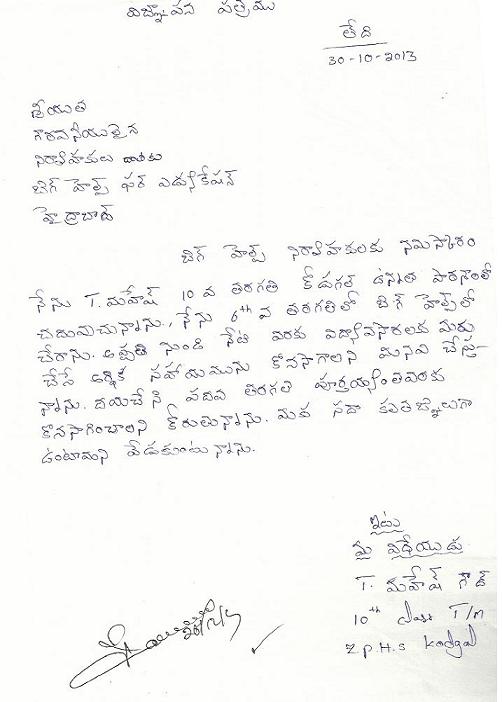 విజ్ఞాపన పత్రము
తేది
30-10-2013
శ్రీయుత
గౌరవనీయులైన
నిర్వాహకులు
బిగ్ హెల్ప్ ఫర్ ఎడ్యుకేషన్
హైద్రాబాద్
బిగ్ హెల్ప్ నిర్వాహకులకు నమస్కారం
నేను T. మహేష్ 10 వ తరగతి కోడగల్ ఉన్నత పాఠశాలలో
చదువుచున్నాను., నేను 6th వ తరగతిలో బిగ్ హెల్ప్‌లో
చేరాను. అప్పటి నుండి నేటి వరకు విద్యావసరాలకు మీరు
చేసే ఆర్థిక సహాయమును కొనసాగాలని మనవి చేస్తు-
న్నాను. దయచేసి పదవ తరగతి పూర్తయ్యేంతవరకు
కొనసాగించాలని కోరుతున్నాను. మీకు సదా కృతజ్ఞులుగా
ఉంటామని వేడుకుంటున్నాను.
ఇట్లు
మీ విధేయుడు
T. మహేష్ గౌడ్
10th class T/m
Z.P.H.S Kodgal